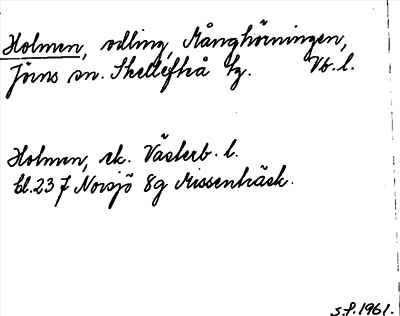 Holmen, odling, Månghörningen,
Jörns sn. Skellefteå tg. Vb. l.
Holmen, ek. Västerb. l.
bl. 23 J Norsjö 8g Missenträsk.
S.P. 1961.